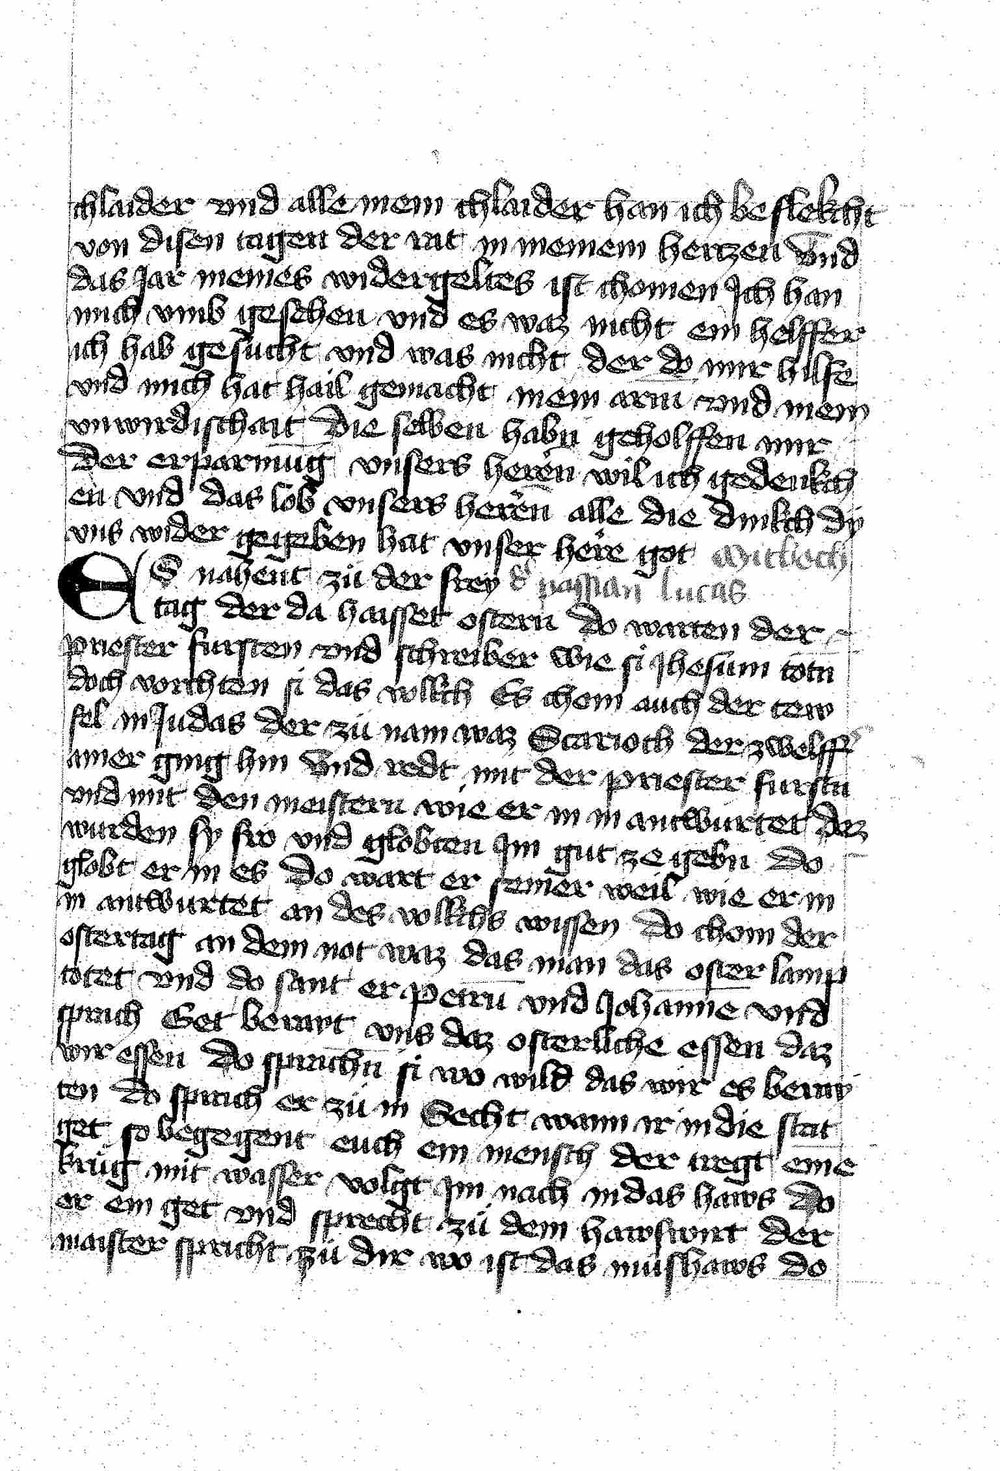 chlaider vnd alle mein chlaider han ich beflekcht
von disen tagen der rat in meinem hertzen Vnd
das Jar meines widergeltes ist chomen Ich han
mich vmb gesehen vnd es waz nicht ein helffer
ich hab gesucht vnd was nicht der do mir hilfe
vnd mich hat hail gemacht mein arm vnd mein
vnwirdischait Die selben habn geholffen mir
Der erparmūg vnsers heren wil ich gedenkch
en vnd das lob vnsers herēn alle die dinkch dy
vns wider gegeben hat vnser here got Mitboch
ES nahent zü der frey d' passian lucas
tag der da haisset ostern Do warten der
priester fursten vnd schreiber wie si Jhesum totn
doch vorchten si das volkch Es chom auch der tew
fel in Judas der zü nam waz Scarioth der zwelff
ainer ging hin Vnd redt mit der priester furstn
vnd mit den meistern wie er in in antwurtet Dez
wurden sy fro vnd globten Im gut ze gebn Do
globt er in es Do wart er seiner weil wie er in
in antwurtet an des volkchs wissen Do chom der
ostertag an dem not waz das man das oster lamp
totet vnd do sant er Petrū vnd Johanne vnd
sprach Get berayt vns daz osterliche essen daz
wir essen Do sprachn si wo wild das wir es beray
ten Do sprach er zü in Secht wann ir in die stat
get so begegent euch ein mensch der tregt eine
krüg mit wasser volgt Im nach in das haws Do
er ein get vnd sprecht zü dem hawswirt der
maister spricht zü dir wo ist das mushaws do